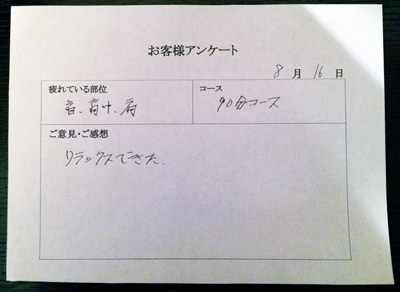 お客様アンケート
8月16日
疲れている部位
首、背中、肩
コース
90分コース
ご意見・ご感想
リラックスできた.